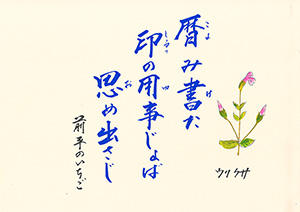 暦み書た
印の用事じょば
思め出さじ
前平のいちご
ウリクサ